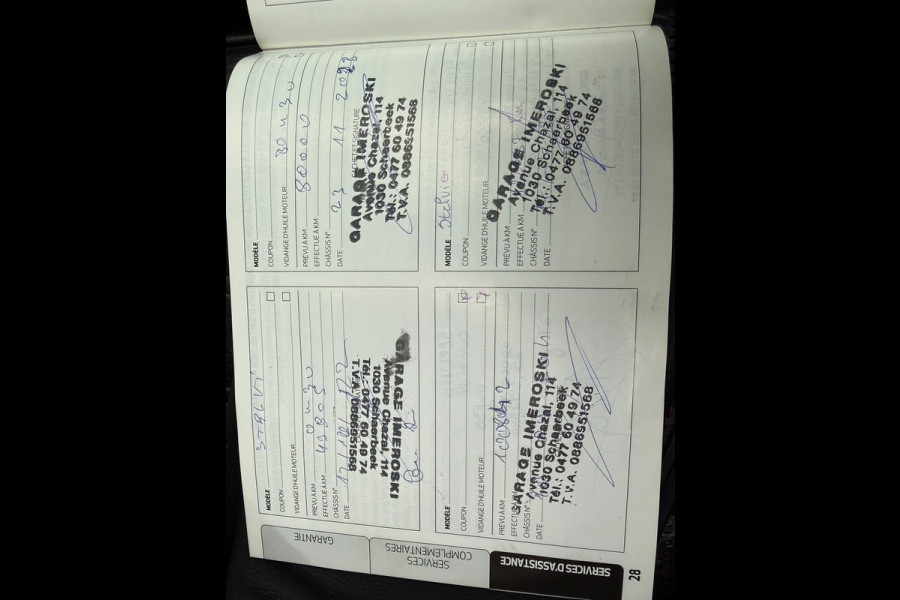 MODÈLE
COUPON
VIDANGE D'HUILE MOTEUR
PRÉVU À KM 80000
EFFECTUÉ À KM
CHÂSSIS N°
DATE 23 11
GARAGE IMEROSKI
Avenue Chazal, 114
1030 Schaerbeek
Tél.: 0477 60 49 74
T.V.A. 0886951568
MODÈLE Stelvio
COUPON
VIDANGE D'HUILE MOTEUR
PRÉVU À KM
EFFECTUÉ À KM
CHÂSSIS N°
DATE
GARAGE IMEROSKI
Avenue Chazal, 114
1030 Schaerbeek
Tél.: 0477 60 49 74
T.V.A. 0886951568
MODÈLE
COUPON
VIDANGE D'HUILE MOTEUR
PRÉVU À KM
EFFECTUÉ À KM
CHÂSSIS N°
DATE
GARAGE IMEROSKI
Avenue Chazal, 114
1030 Schaerbeek
Tél.: 0477 60 49 74
T.V.A. 0886951568
MODÈLE
COUPON
VIDANGE D'HUILE MOTEUR
PRÉVU À KM
EFFECTUÉ
CHÂSSIS N°
DATE
GARAGE IMEROSKI
Avenue Chazal, 114
1030 Schaerbeek
Tél.: 0477 60 49 74
T.V.A. 0886951568
GARANTIE
SERVICES
COMPLÉMENTAIRES
SERVICES D'ASSISTANCE
28